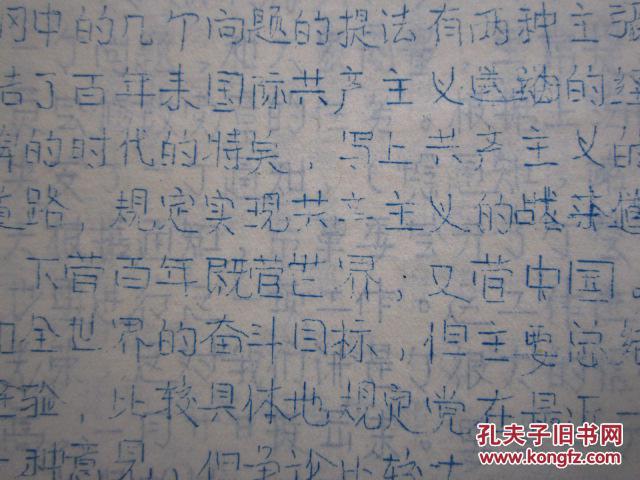 网中的几个问题的提法有两种主张
结了百年来国际共产主义运动的经
的时代的特点，写上共产主义的
道路，规定实现共产主义的战来道
下管百年既管世界，又管中国。
和全世界的奋斗目标，但主要总结
经验，比较具体地规定党在最近一
一种意见，但争论比较大
孔夫子旧书网
www.kongfz.com